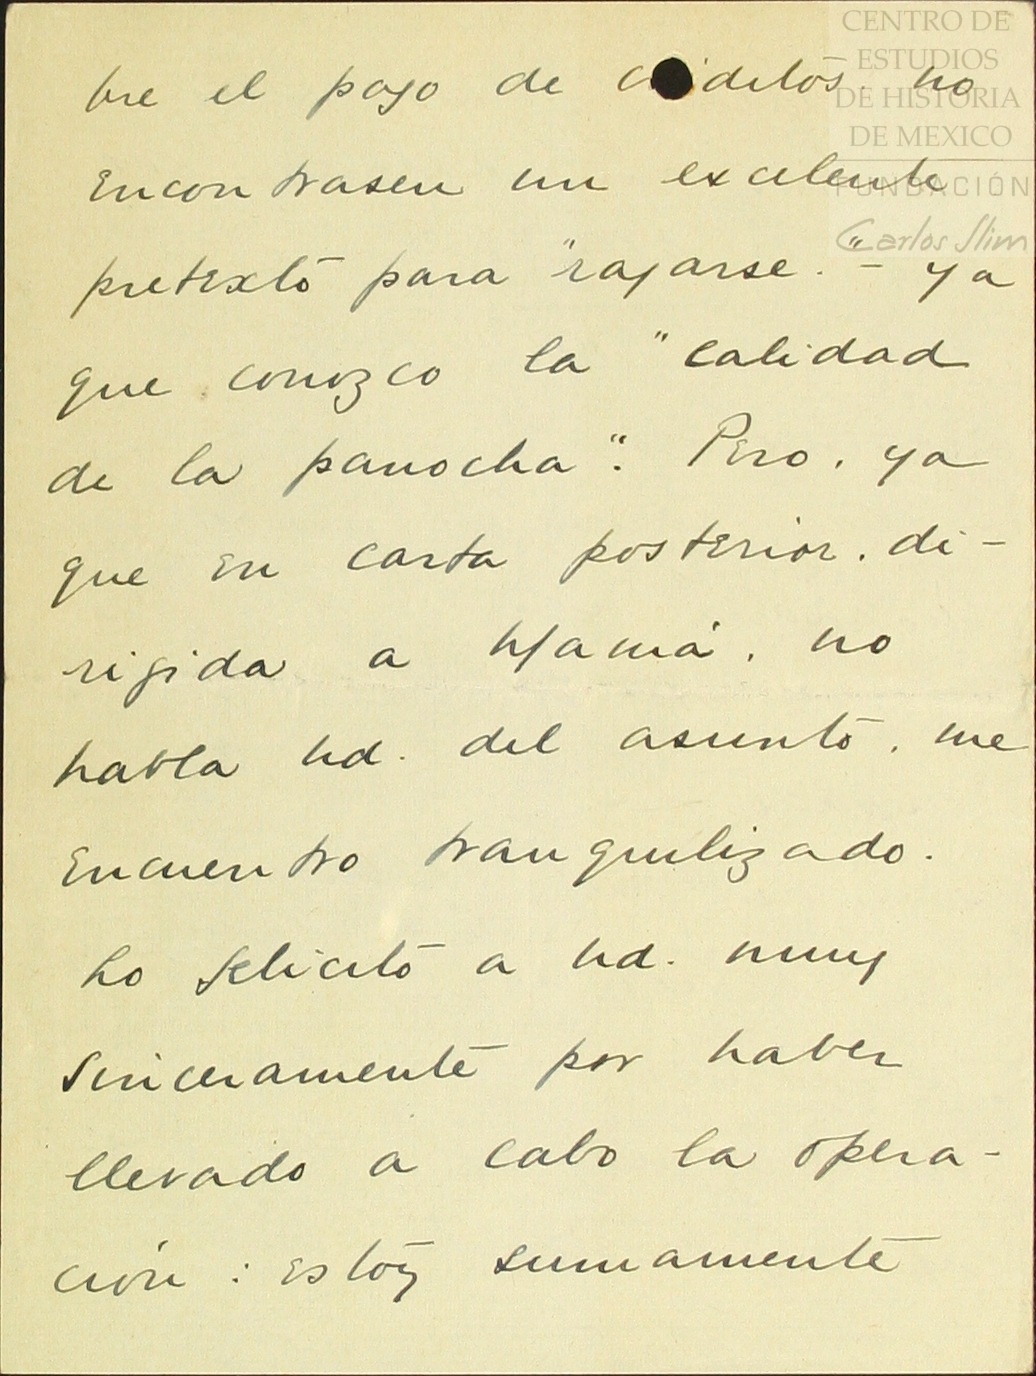 CENTRO DE
ESTUDIOS
DE HISTORIA
DE MEXICO
FUNDACIÓN
Carlos Slim
bre el pago de c ditos. no
encontrasen un excelente
pretexto para "rajarse". - ya
que conozco la "calidad
de la panocha". Pero, ya
que en carta posterior, di-
rigida a Mamá, no
habla ud. del asunto, me
encuentro tranquilizado.
Lo felicito a ud. muy
sinceramente por haber
llevado a cabo la opera-
ción: estoy sumamente